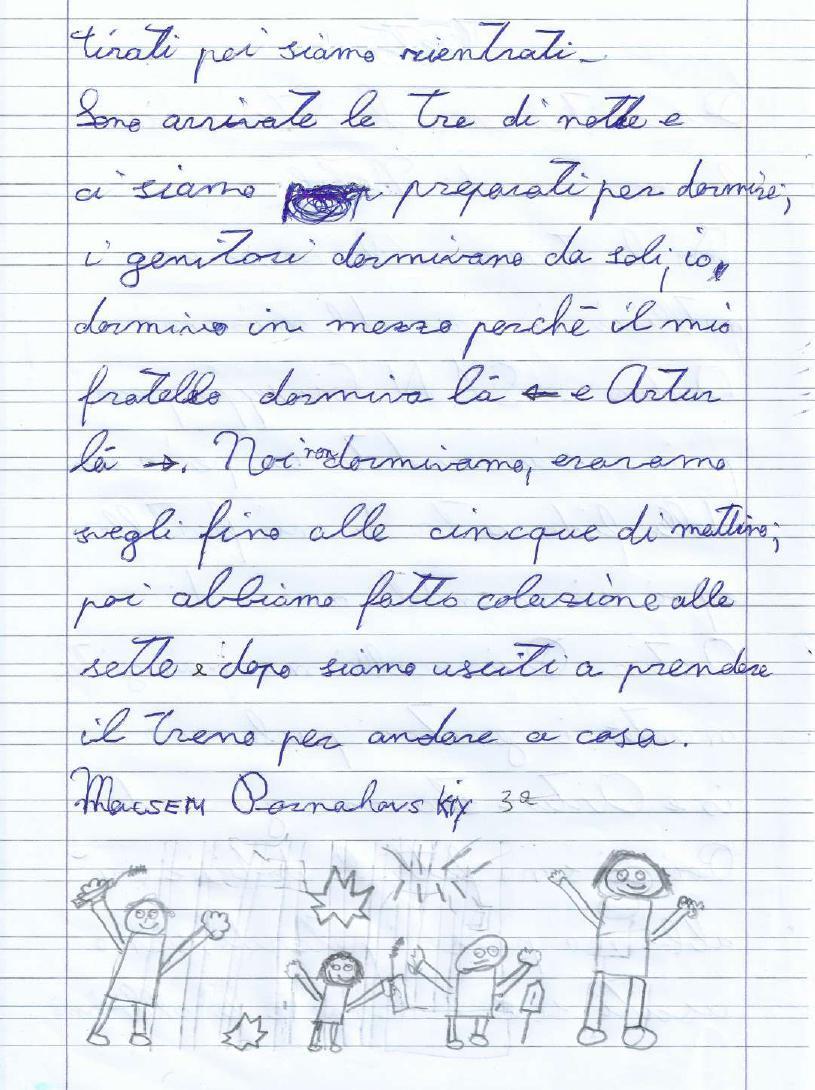 tirati poi siamo rientrati_
Sono arrivate le tre di notte e
ci siamo preparati per dormire;
i genitori dormivano da soli, io
dormivo in mezzo perchè il mio
fratello dormiva là ← e Artur
là →. Noi non dormivamo, eravamo
svegli fino alle cincque di mattino;
poi abbiamo fatto colazione alle
sette e dopo siamo usciti a prendere
il treno per andare a casa.
MacSEM 3a